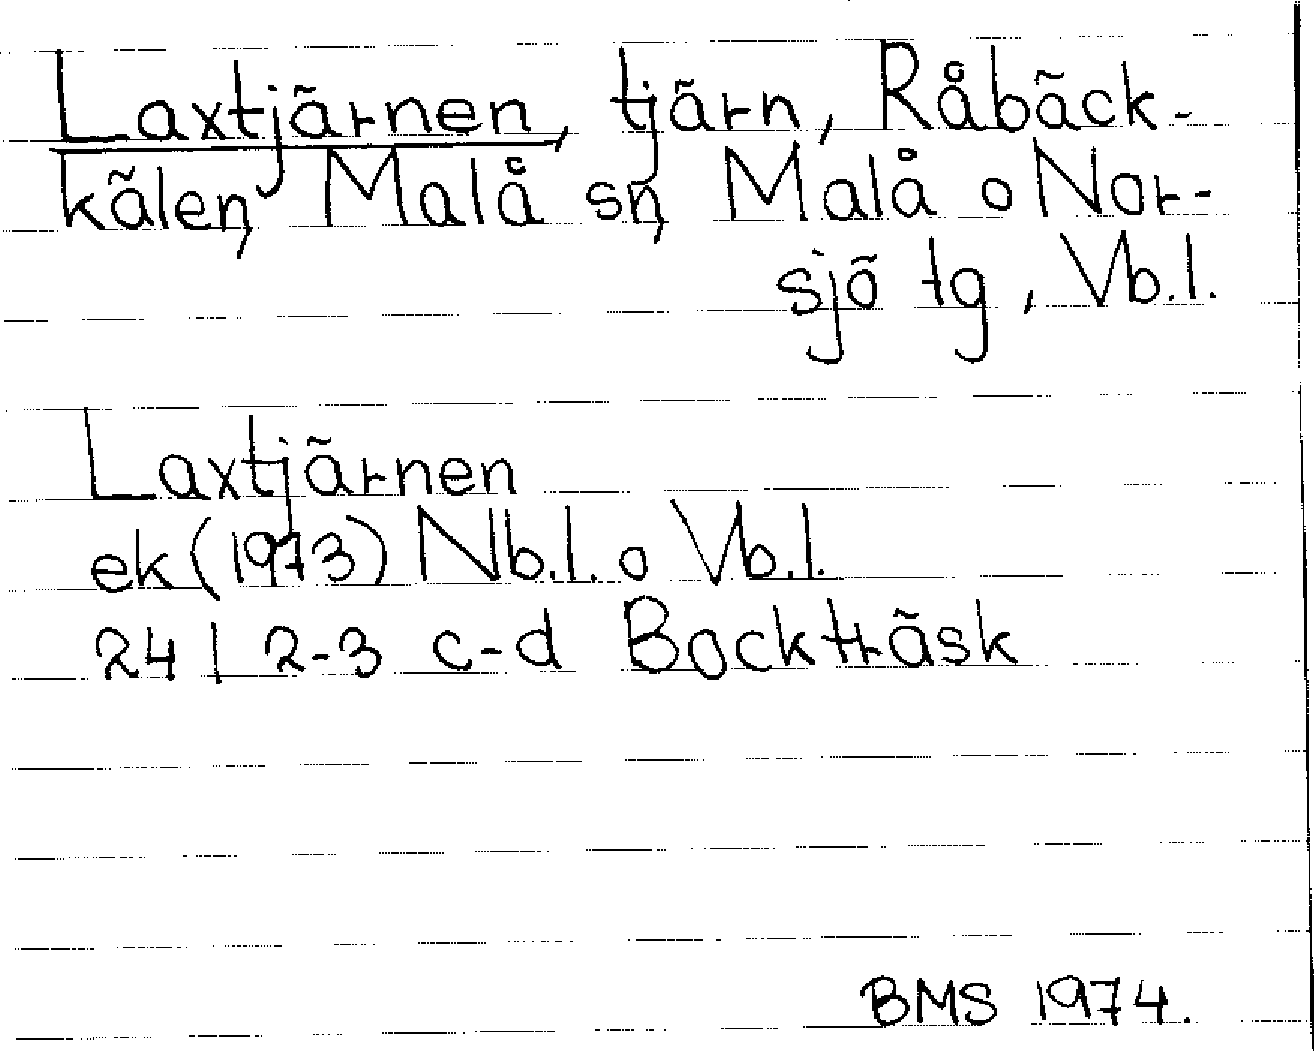 Laxtjärnen, tjärn, Råbäck-
kälen, Malå sn, Malå o Nor-
sjö tg, Vb.l.
Laxtjärnen
ek (1973) Nb.l. o Vb.l.
24 I 2-3 c-d Bockträsk
BMS 1974.